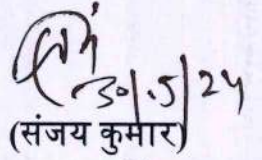 30.5.24
(संजय कुमार)